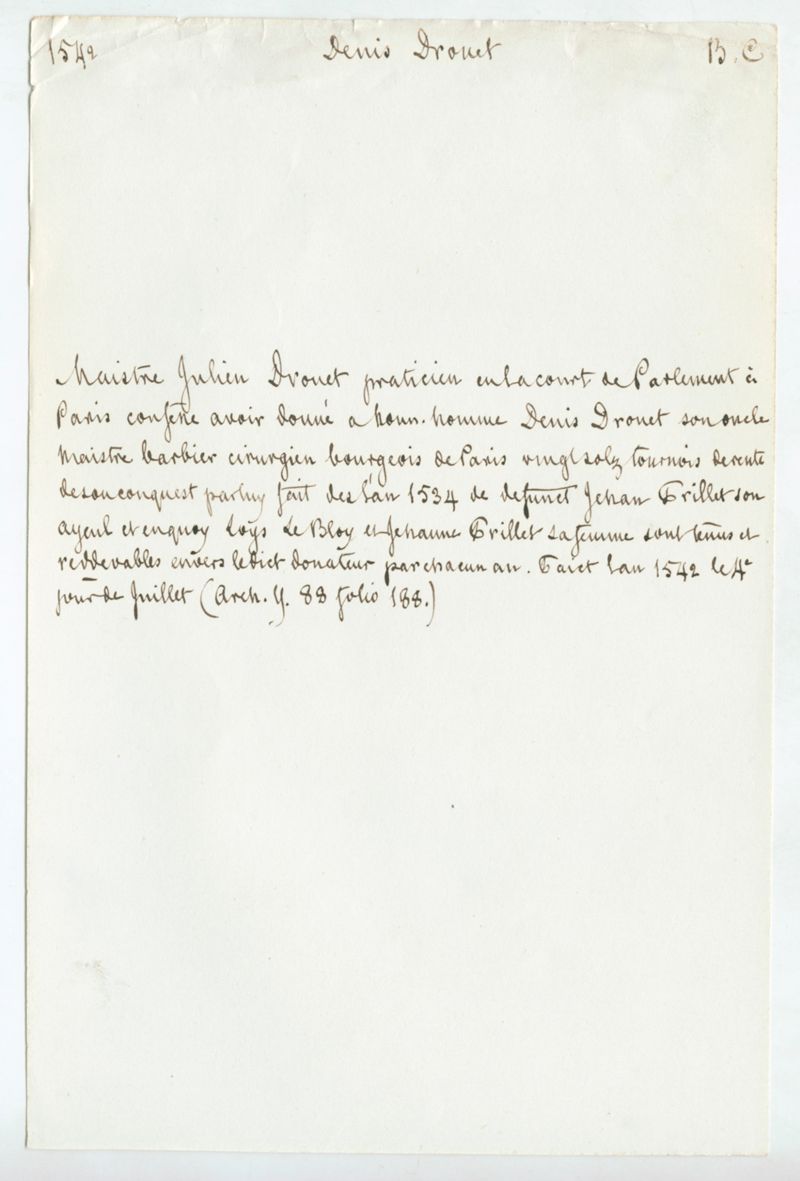 1542 Denis Drouet B. C
Maistre Julien Drouet praticien en la court de Parlement à
Paris confesse avoir donné a honn. homme Denis Drouet son oncle
maistre barbier cirurgien bourgeois de Paris vingt solz tournois de rente
de son conquest par luy fait des l'an 1534 de defunct Jehan Grillet son
ayeul et en quoy Loÿs Le Bloy et Jehanne Grillet sa femme sont tenus et
reddevables envers le dict donateur par chacun an. Faict lan 1542 le 4e
jour de Juillet (Arch. Y. 88 folio 188.)